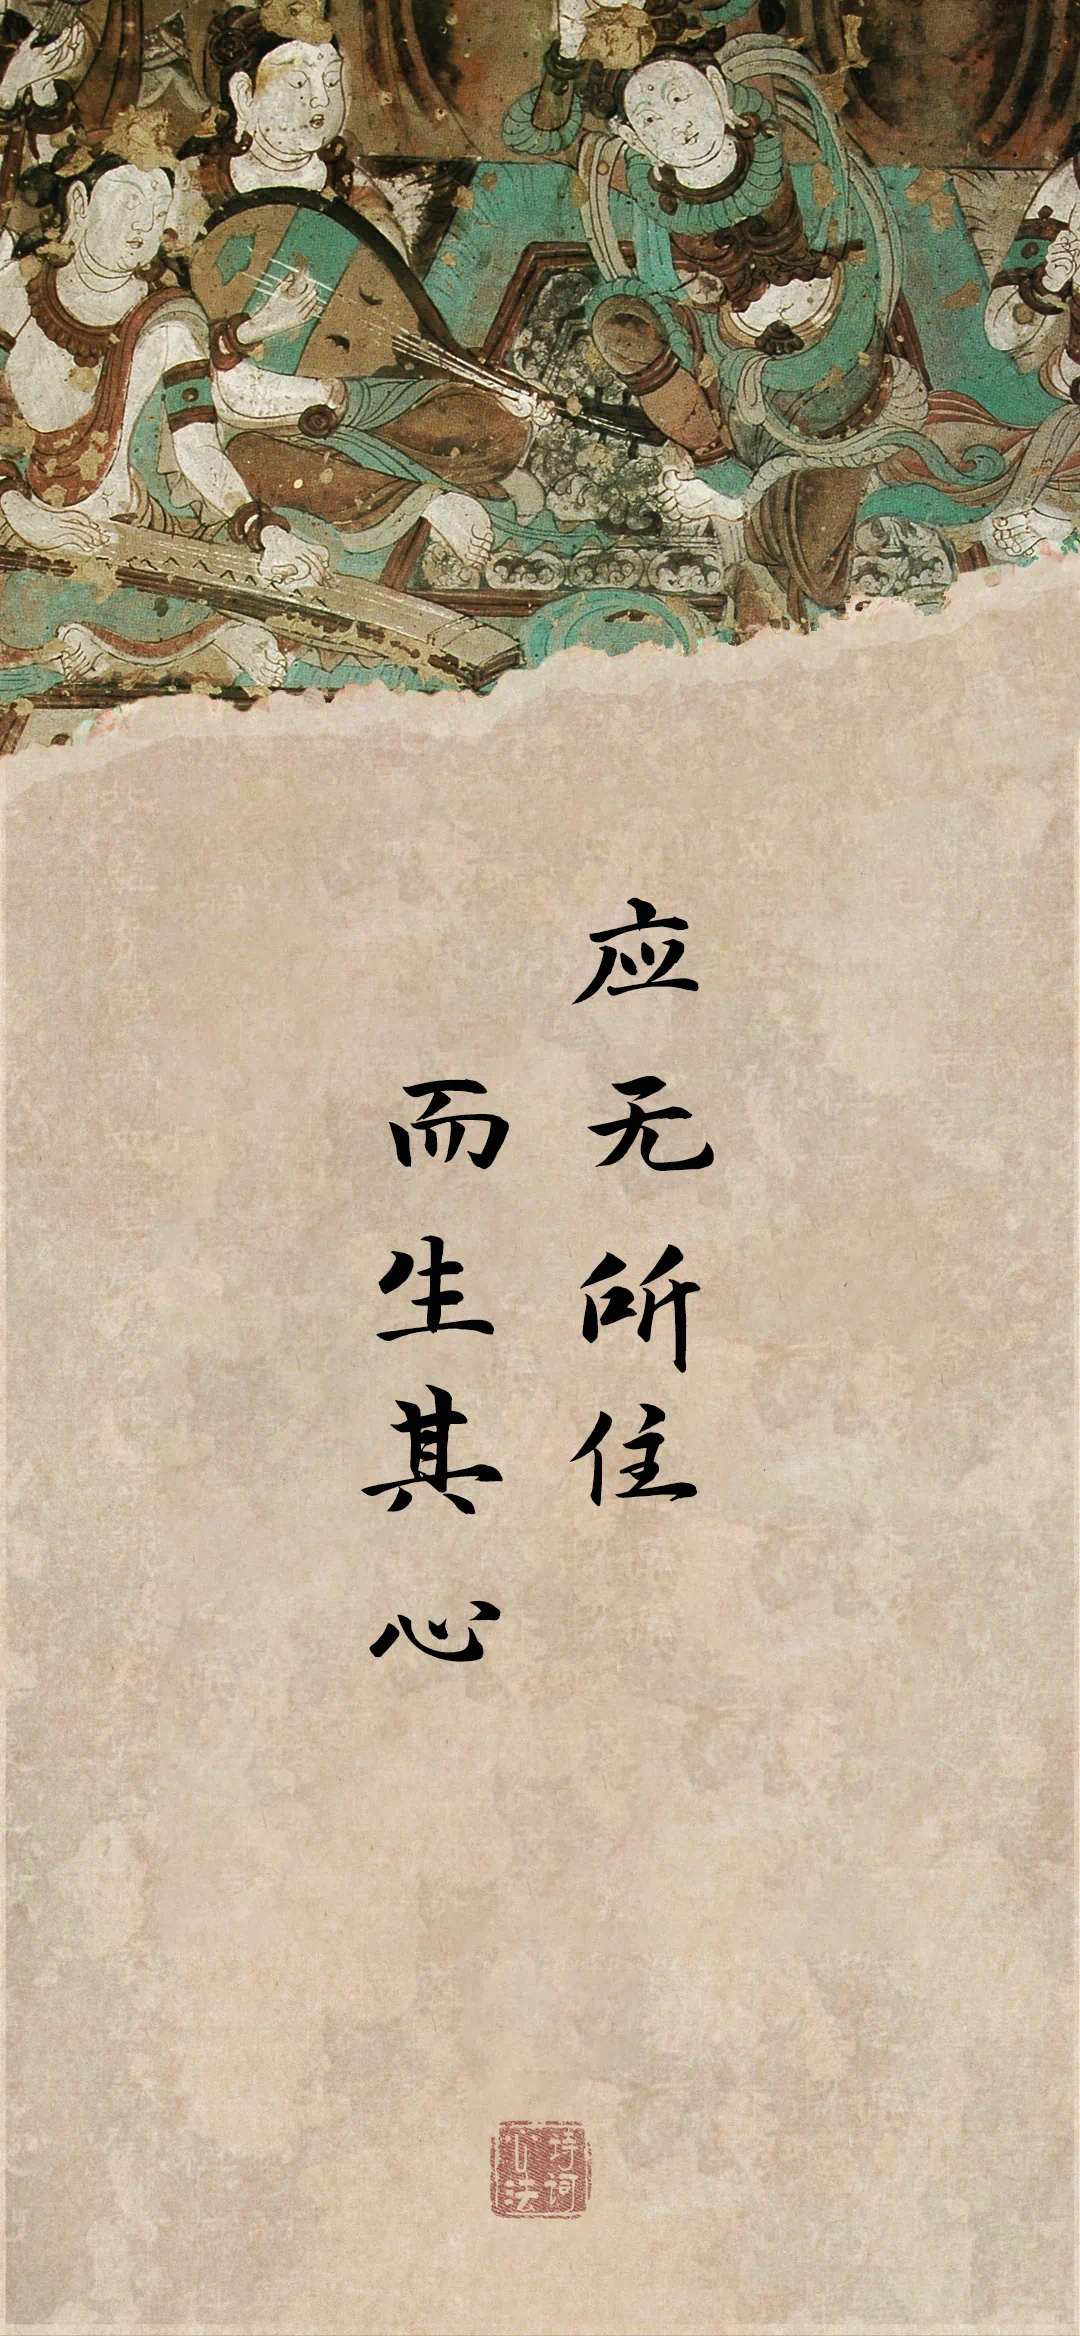 应无所住
而生其心
诗词
心法